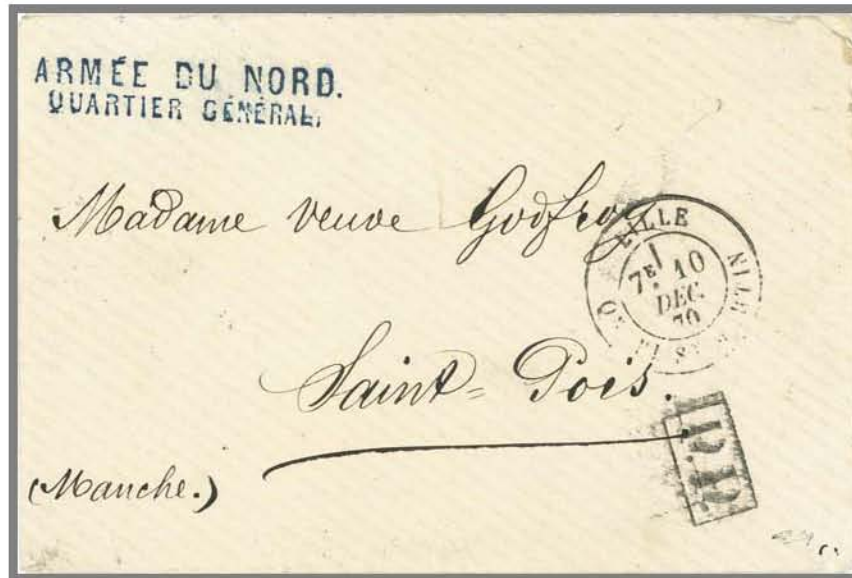 ARMÉE DU NORD.
QUARTIER GÉNÉRAL.
Madame veuve Godfroy
LILLE
7E 10
DEC.
70
Saint-Pois.
P.P.
(Manche.)